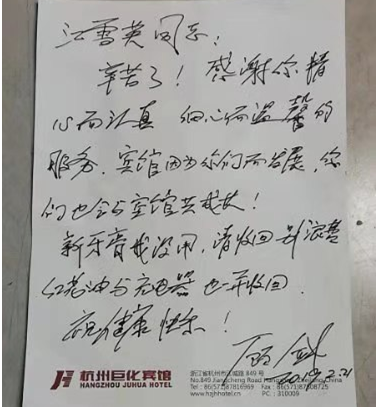 江雪英同志:
辛苦了! 感谢你精
心而认真 细心而温馨的
服务. 宾馆因为你们而发展, 你
们也会与宾馆共成长!
新牙膏我没用, 请收回 别浪费
红花油与充电器 也一并收回.
祝健康快乐!
2019.2.21
杭州巨化宾馆
HANGZHOU JUHUA HOTEL
浙江省杭州市江城路 849 号
No.849 Jiangcheng Road Hangzhou
Tel: 86(571)87816969 Fax: 86(571)87808725
www.hzjhhotel.cn PC: 310009